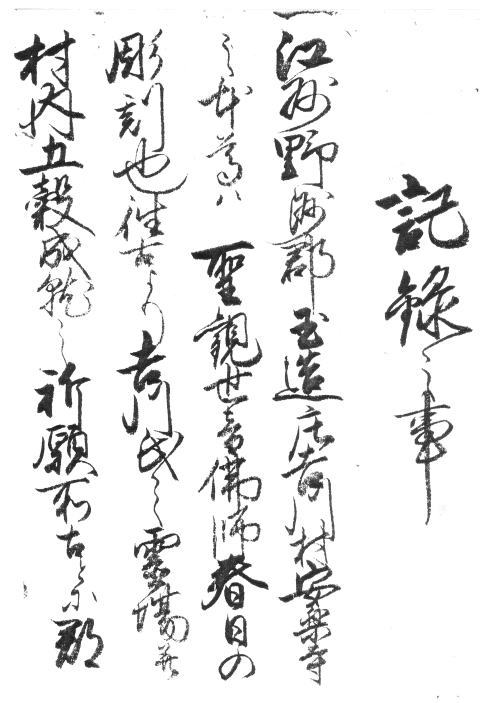 記録之事
一江州野洲郡玉造庄吉川村安楽寺
之本尊ハ聖観世音佛師春日の
彫刻也往古より吉川氏之霊場并
村内五穀成就之祈願所古と郡